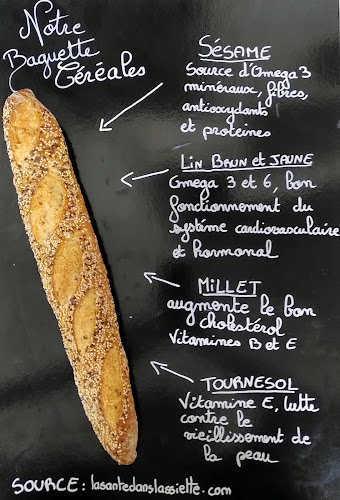 Notre
Baguette
Céréales
SÉSAME
Source d'Omega 3
minéraux, fibres,
antioxydants
et proteines
LIN BRUN et JAUNE
Omega 3 et 6, bon
fonctionnement du
système cardiovasculaire
et hormonal
MILLET
augmente le bon
cholstérol
Vitamines B et E
TOURNESOL
Vitamine E, lutte
contre le
vieillissement de
la peau
SOURCE : lasantedanslassiette.com